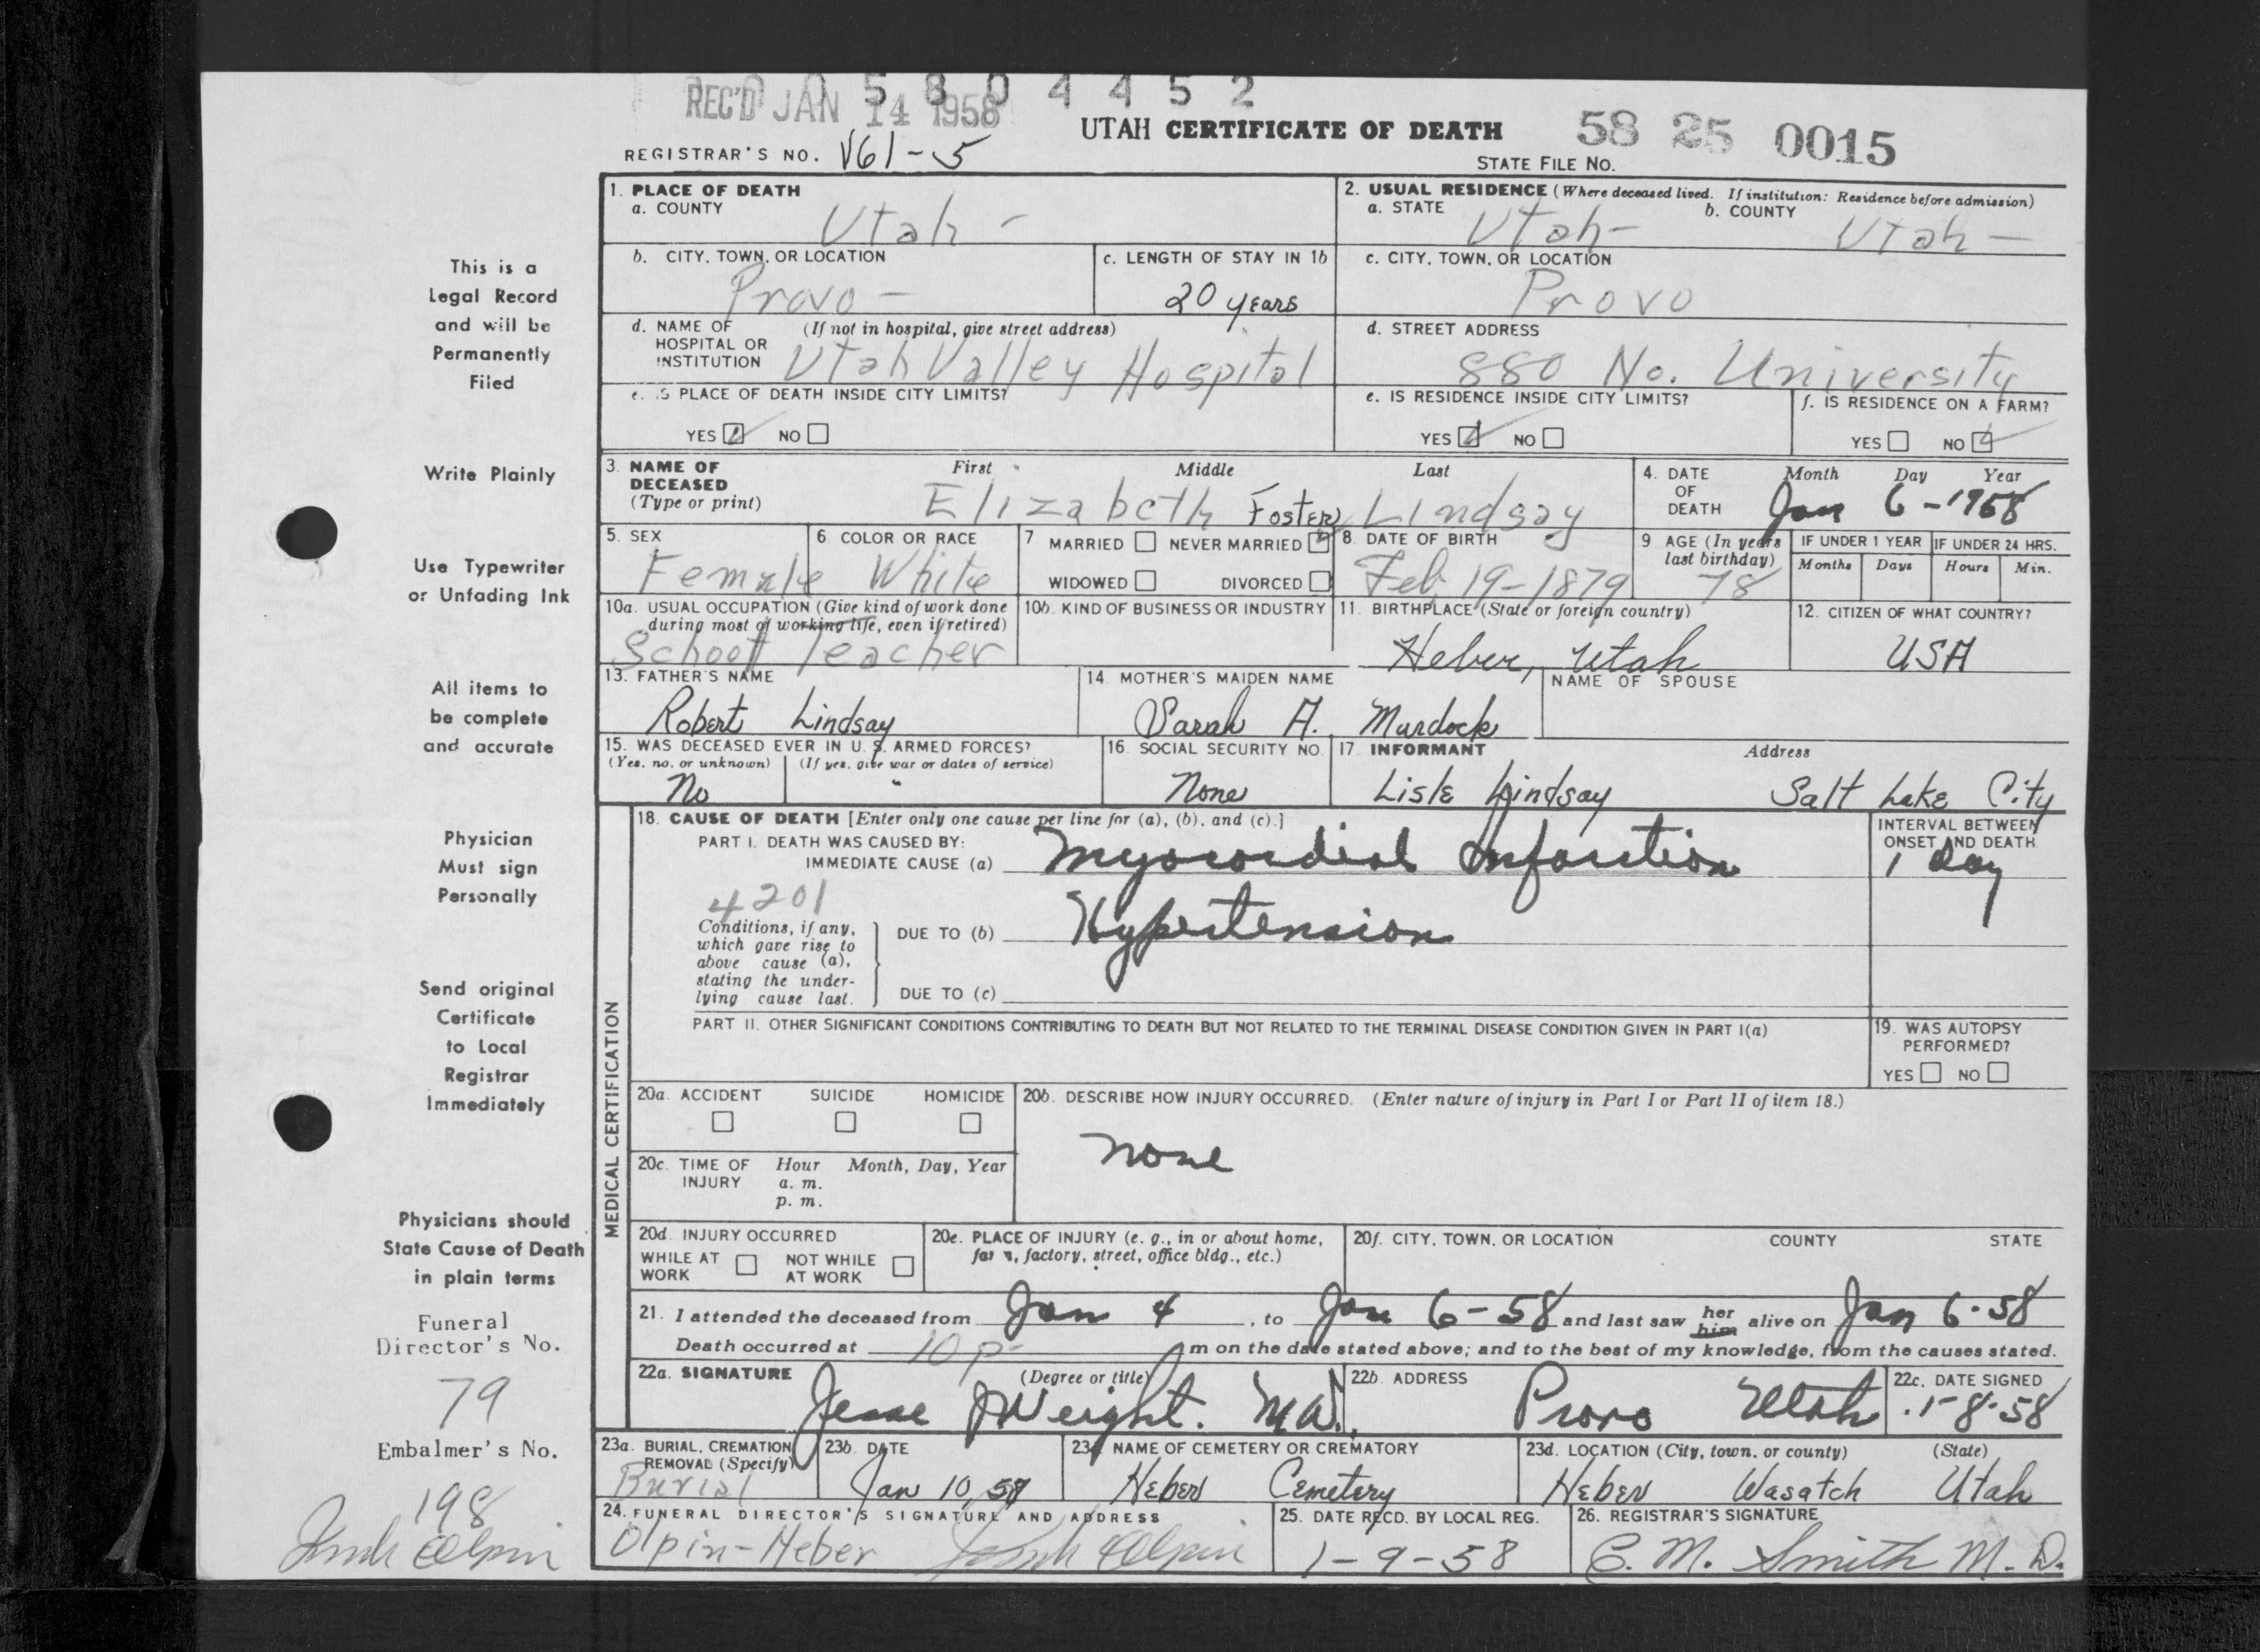 0 5 8 0 4 4 5 2
REC'D JAN 14 1958
UTAH CERTIFICATE OF DEATH 58 25 0015
REGISTRAR'S NO. V61-5 STATE FILE NO.
1. PLACE OF DEATH
a. COUNTY Utah -
2. USUAL RESIDENCE (Where deceased lived. If institution: Residence before admission)
a. STATE Utah- b. COUNTY Utah -
b. CITY, TOWN, OR LOCATION Provo -
c. LENGTH OF STAY IN 1b 20 years
c. CITY, TOWN, OR LOCATION Provo
d. NAME OF HOSPITAL OR INSTITUTION (If not in hospital, give street address) Utah Valley Hospital
d. STREET ADDRESS 880 No. University
e. IS PLACE OF DEATH INSIDE CITY LIMITS?
YES NO
e. IS RESIDENCE INSIDE CITY LIMITS?
YES NO
f. IS RESIDENCE ON A FARM?
YES NO
3. NAME OF DECEASED (Type or print) First Middle Last
Elizabeth Foster Lindsay
4. DATE OF DEATH Month Day Year
Jan 6-1958
5. SEX Female
6 COLOR OR RACE White
7 MARRIED NEVER MARRIED
WIDOWED DIVORCED
8. DATE OF BIRTH Feb 19-1879
9 AGE (In years last birthday) 78
IF UNDER 1 YEAR Months Days
IF UNDER 24 HRS. Hours Min.
10a. USUAL OCCUPATION (Give kind of work done during most of working life, even if retired)
School Teacher
10b. KIND OF BUSINESS OR INDUSTRY
11. BIRTHPLACE (State or foreign country)
Heber, Utah
12. CITIZEN OF WHAT COUNTRY?
USA
13. FATHER'S NAME
Robert Lindsay
14. MOTHER'S MAIDEN NAME
Sarah A. Murdock
NAME OF SPOUSE
15. WAS DECEASED EVER IN U. S. ARMED FORCES?
(Yes, no, or unknown) (If yes, give war or dates of service)
No "
16. SOCIAL SECURITY NO.
None
17. INFORMANT Address
Lisle Lindsay Salt Lake City
MEDICAL CERTIFICATION
18. CAUSE OF DEATH [Enter only one cause per line for (a), (b), and (c).]
PART I. DEATH WAS CAUSED BY:
IMMEDIATE CAUSE (a) Myocardial Infarction
INTERVAL BETWEEN ONSET AND DEATH
1 day
4201
Conditions, if any, which gave rise to above cause (a), stating the underlying cause last.
DUE TO (b) Hypertension
DUE TO (c)
PART II. OTHER SIGNIFICANT CONDITIONS CONTRIBUTING TO DEATH BUT NOT RELATED TO THE TERMINAL DISEASE CONDITION GIVEN IN PART I(a)
19. WAS AUTOPSY PERFORMED?
YES NO
20a. ACCIDENT SUICIDE HOMICIDE
20b. DESCRIBE HOW INJURY OCCURRED. (Enter nature of injury in Part I or Part II of item 18.)
none
20c. TIME OF INJURY Hour Month, Day, Year
a. m.
p. m.
20d. INJURY OCCURRED
WHILE AT WORK NOT WHILE AT WORK
20e. PLACE OF INJURY (e. g., in or about home, farm, factory, street, office bldg., etc.)
20f. CITY, TOWN, OR LOCATION COUNTY STATE
21. I attended the deceased from Jan 4, to Jan 6-58 and last saw her him alive on Jan 6-58
Death occurred at 10 p- m on the date stated above; and to the best of my knowledge, from the causes stated.
22a. SIGNATURE (Degree or title)
Jesse J Weight. M.D.
22b. ADDRESS
Provo Utah
22c. DATE SIGNED
1-8-58
23a. BURIAL, CREMATION REMOVAL (Specify)
Burial
23b. DATE
Jan 10, 58
23c. NAME OF CEMETERY OR CREMATORY
Heber Cemetery
23d. LOCATION (City, town, or county) (State)
Heber Wasatch Utah
24. FUNERAL DIRECTOR'S SIGNATURE AND ADDRESS
Olpin-Heber Olpin
25. DATE RECD. BY LOCAL REG.
1-9-58
26. REGISTRAR'S SIGNATURE
C. M. Smith M. D.
This is a
Legal Record
and will be
Permanently
Filed
Write Plainly
Use Typewriter
or Unfading Ink
All items to
be complete
and accurate
Physician
Must sign
Personally
Send original
Certificate
to Local
Registrar
Immediately
Physicians should
State Cause of Death
in plain terms
Funeral
Director's No.
79
Embalmer's No.
198
Olpin